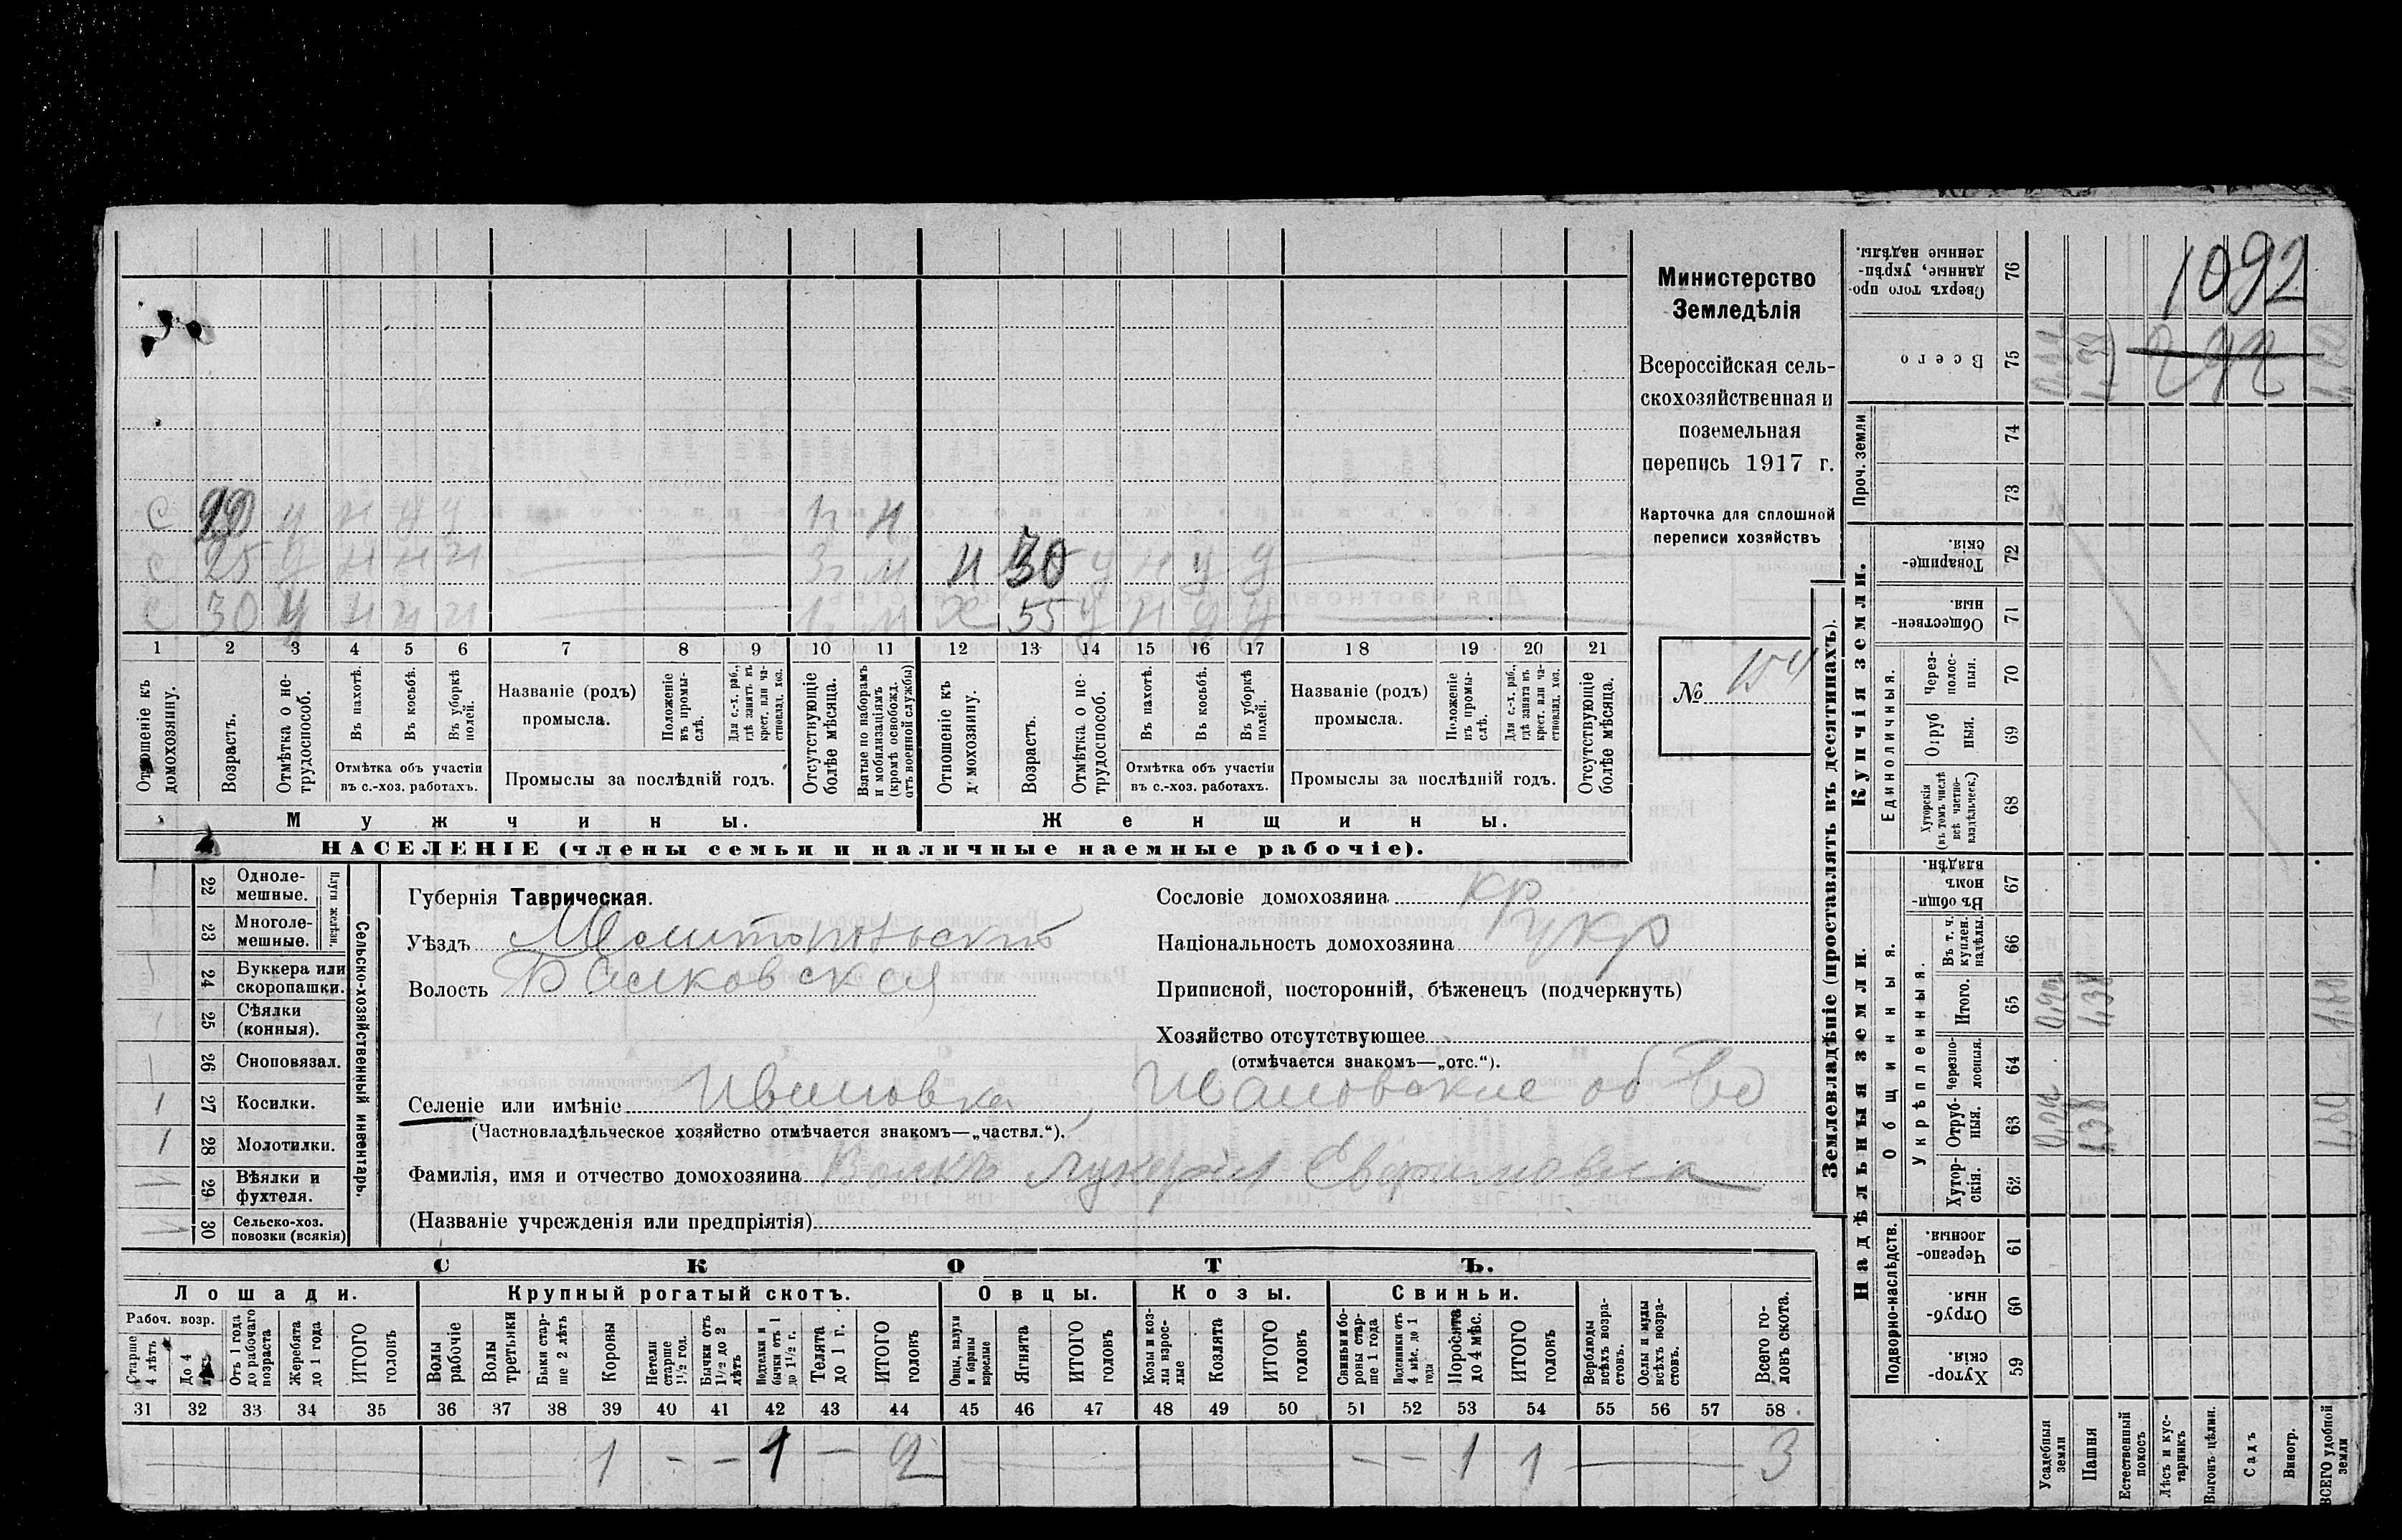 Министерство
Земледѣлія
Всероссійская сель-
скохозяйственная и
поземельная
перепись 1917 г.
Карточка для сплошной
переписи хозяйствъ
№ 154
1092
с 25 у н н н 3г м н 30 у н у у
с 30 у н н н 1г м х 55 у н у у
1 2 3 4 5 6 7 8 9 10 11 12 13 14 15 16 17 18 19 20 21
Отношеніе къ домохозяину.
Возрастъ.
Отмѣтка о не-трудоспособ.
Въ пахотѣ.
Въ косьбѣ.
Въ уборкѣ полей.
Отмѣтка объ участіи
въ с.-хоз. работахъ.
Названіе (родъ)
промысла.
Положеніе въ промы-слѣ.
Для с.-х. раб., гдѣ занятъ въ крест. или ча-стновлад. хоз.
Промыслы за послѣдній годъ.
Отсутствующіе болѣе мѣсяца.
Взятые по наборамъ и мобилизаціямъ (кромѣ освобожд. отъ военной службы)
Отношеніе къ домохозяину.
Возрастъ.
Отмѣтка о не-трудоспособ.
Въ пахотѣ.
Въ косьбѣ.
Въ уборкѣ полей.
Отмѣтка объ участіи
въ с.-хоз. работахъ.
Названіе (родъ)
промысла.
Положеніе въ промы-слѣ.
Для с.-х. раб., гдѣ занята въ крест. или ча-стновлад. хоз.
Промыслы за послѣдній годъ.
Отсутствующіе болѣе мѣсяца.
Мужчины.
Женщины.
НАСЕЛЕНІЕ (члены семьи и наличные наемные рабочіе).
Сельско-хозяйственный инвентарь.
Плуги желѣзн.
22 Одноле-мешные.
23 Многоле-мешные.
24 Буккера или скоропашки.
25 Сѣялки (конныя).
26 Сноповязал.
1 27 Косилки.
1 28 Молотилки.
29 Вѣялки и фухтеля.
30 Сельско-хоз. повозки (всякія)
Губернія Таврическая.
Уѣздъ Мелитопольскій
Волость Балковская
Сословіе домохозяина кр
Національность домохозяина укр
Приписной, посторонній, бѣженецъ (подчеркнуть)
Хозяйство отсутствующее
(отмѣчается знакомъ—„отс.“).
Селеніе или имѣніе
(Частновладѣльческое хозяйство отмѣчается знакомъ—„частвл.“).
Фамилія, имя и отчество домохозяина Волкъ Лукерія
(Названіе учрежденія или предпріятія)
СКОТЪ.
Лошади.
Крупный рогатый скотъ.
Овцы.
Козы.
Свиньи.
Рабоч. возр.
Старше 4 лѣтъ
До 4 лѣтъ
Отъ 1 года до рабочаго возраста
Жеребята до 1 года
ИТОГО головъ
Волы рабочіе
Волы третьяки
Быки стар-ше 2 лѣтъ
Коровы
Нетели старше 1½ год.
Бычки отъ 1½ до 2 лѣтъ
Подтелки и бычки отъ 1 до 1½ г.
Телята до 1 г.
ИТОГО головъ
Овцы, валухи и бараны взрослые
Ягнята
ИТОГО головъ
Козы и коз-лы взрос-лые
Козлята
ИТОГО головъ
Свиньи и бо-ровы стар-ше 1 года
Подсвинки отъ 4 мѣс. до 1 года
Поросята до 4 мѣс.
ИТОГО головъ
Верблюды всѣхъ возра-стовъ.
Ослы и мулы всѣхъ возра-стовъ.
Всего го-ловъ скота.
31 32 33 34 35 36 37 38 39 40 41 42 43 44 45 46 47 48 49 50 51 52 53 54 55 56 57 58
1 - - 1 - 2 - - 1 1 3
Землевладѣніе (проставлять въ десятинахъ).
Купчія земли.
Надѣльныя земли.
Проч. земли
Единоличныя.
Общинныя.
Укрѣпленныя.
Подворно-наслѣдств.
Сверхъ того про-данные, укрѣп-ленные надѣлы. 76
Всего 75
74
73
Товарище-скія. 72
Обществен-ныя. 71
Через-полос-ныя. 70
Отруб-ныя. 69
Хуторскія (въ томъ числѣ всѣ частно-владѣльческ.) 68
Въ общи-номъ владѣн. 67
Въ т. ч. куплен. надѣлы. 66
Итого. 65 1,38
Черезпо-лосныя. 64
Отруб-ныя. 63 1,38
Хутор-скія. 62
Черезпо-лосныя. 61
Отруб-ныя. 60
Хутор-скія. 59
Усадебныя земли
Пашня
Естественный покосъ
Лѣсъ и кус-тарникъ
Выгонъ цѣлин.
Садъ
Виногр.
ВСЕГО удобной земли